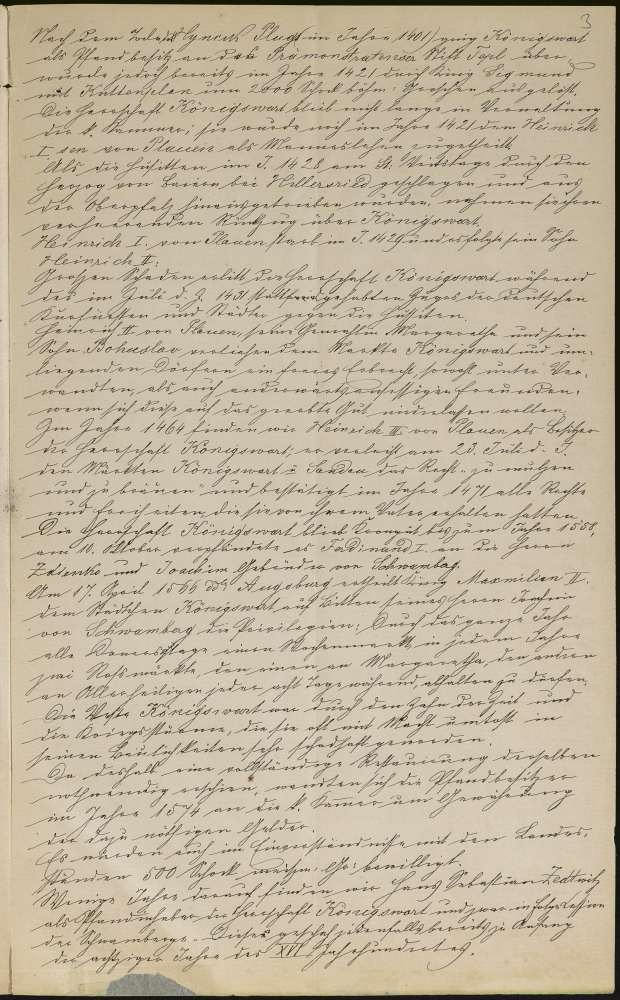 3
Nach dem Tode Hyncek Plugs im Jahre 1401 ging Königswart
als Pfandbesitz an das Prämonstratenser Stift Tepl über
wurde jedoch bereits im Jahre 1421 durch König Sigmund
mit Kuttenplan um 2000 Schock böhm: Groschen ausgelöst.
Die Herrschaft Königswart blieb nicht lange in Verwaltung
der k. Kammer; sie wurde noch im Jahre 1421 dem Heinrich
I. von Plauen als Mannslehen zugetheilt
Als die Husitten im J. 1428 am St. Veitstage durch den
Herzog von Baiern bei Hiltersried geschlagen und aus
der Oberpfalz hinausgetrieben wurden, nahmen sie ihren
verheerenden Rückzug über Königswart.
Heinrich I. von Plauen starb im J. 1429 und es folgte sein Sohn
Heinrich II.
Großen Schaden erlitt die Herrschaft Königswart während
des im Juli d. J. 1431 stattgehabten Zuges der deutschen
Kurfürsten und Städter gegen die Husiten.
Heinrich II. von Plauen, seine Gemahlin Margaretha und sein
Sohn Bohuslav verliehen dem Markte Königswart und um-
liegenden Dörfern ein freies Erbrecht, sowohl unter Ver-
wandten, als auch anderwärts ansässigen Freunden,
wenn sich diese auf das geerbte Gut niederlassen wollen.
Im Jahre 1464 finden wir Heinrich III. von Plauen als Besitzer
der Herrschaft Königswart; er verleiht am 23. Juli d. J.
den Märkten Königswart u. Sandau das Recht "zu mulzen
und zu bräuen" und bestätigt im Jahre 1471 alle Rechte
und Freiheiten, die sie von ihrem Vater erhalten hatten.
Die Herrschaft Königswart blieb bis zum Jahre 1558,
am 10. Oktober verpfändete es Ferdinand I. an die Herrn
Zdienko und Joachim Gebrüder von Schwambag.
Am 17. April 1566 ddo Augsburg ertheilt König Maxmilian II.
dem Städtchen Königswart auf Bitten seines Herrn Joachim
von Schwambag die Privilegien: Durch das ganze Jahr
alle Donnerstage einen Wochenmarkt, in jedem Jahre
zwei Roßmärkte, den einen an Margaretha, den andern
an Allerheiligen jeder acht Tage während, abhalten zu dürfen.
Die Veste Königswart war durch den Zahn der Zeit und
die Kriegsstürme, die sie oft mit Macht umtost in
seinen Baulichkeiten sehr schadhaft geworden.
Da deshalb eine vollständige Restaurirung derselben
nothwendig erschien, wendten sich die Pfandbesitzer
im Jahre 1574 an die k. Kamer um Gewährung
der dazu nöthigen Gelder.
Es wurden auch im Einverständnisse mit den Landes-
ständen 500 Schock meißn: Gr: bewilligt.
Wenige Jahre darauf finden wir Hans Sebastian Zedtwitz
als Pfandinhaber der Herrschaft Königswart und zwar in Folge Cession
der Schwamberge. Dieses geschah jedenfalls bereits zu Anfang
der achtziger Jahre des XVI. Jahrhundertes.